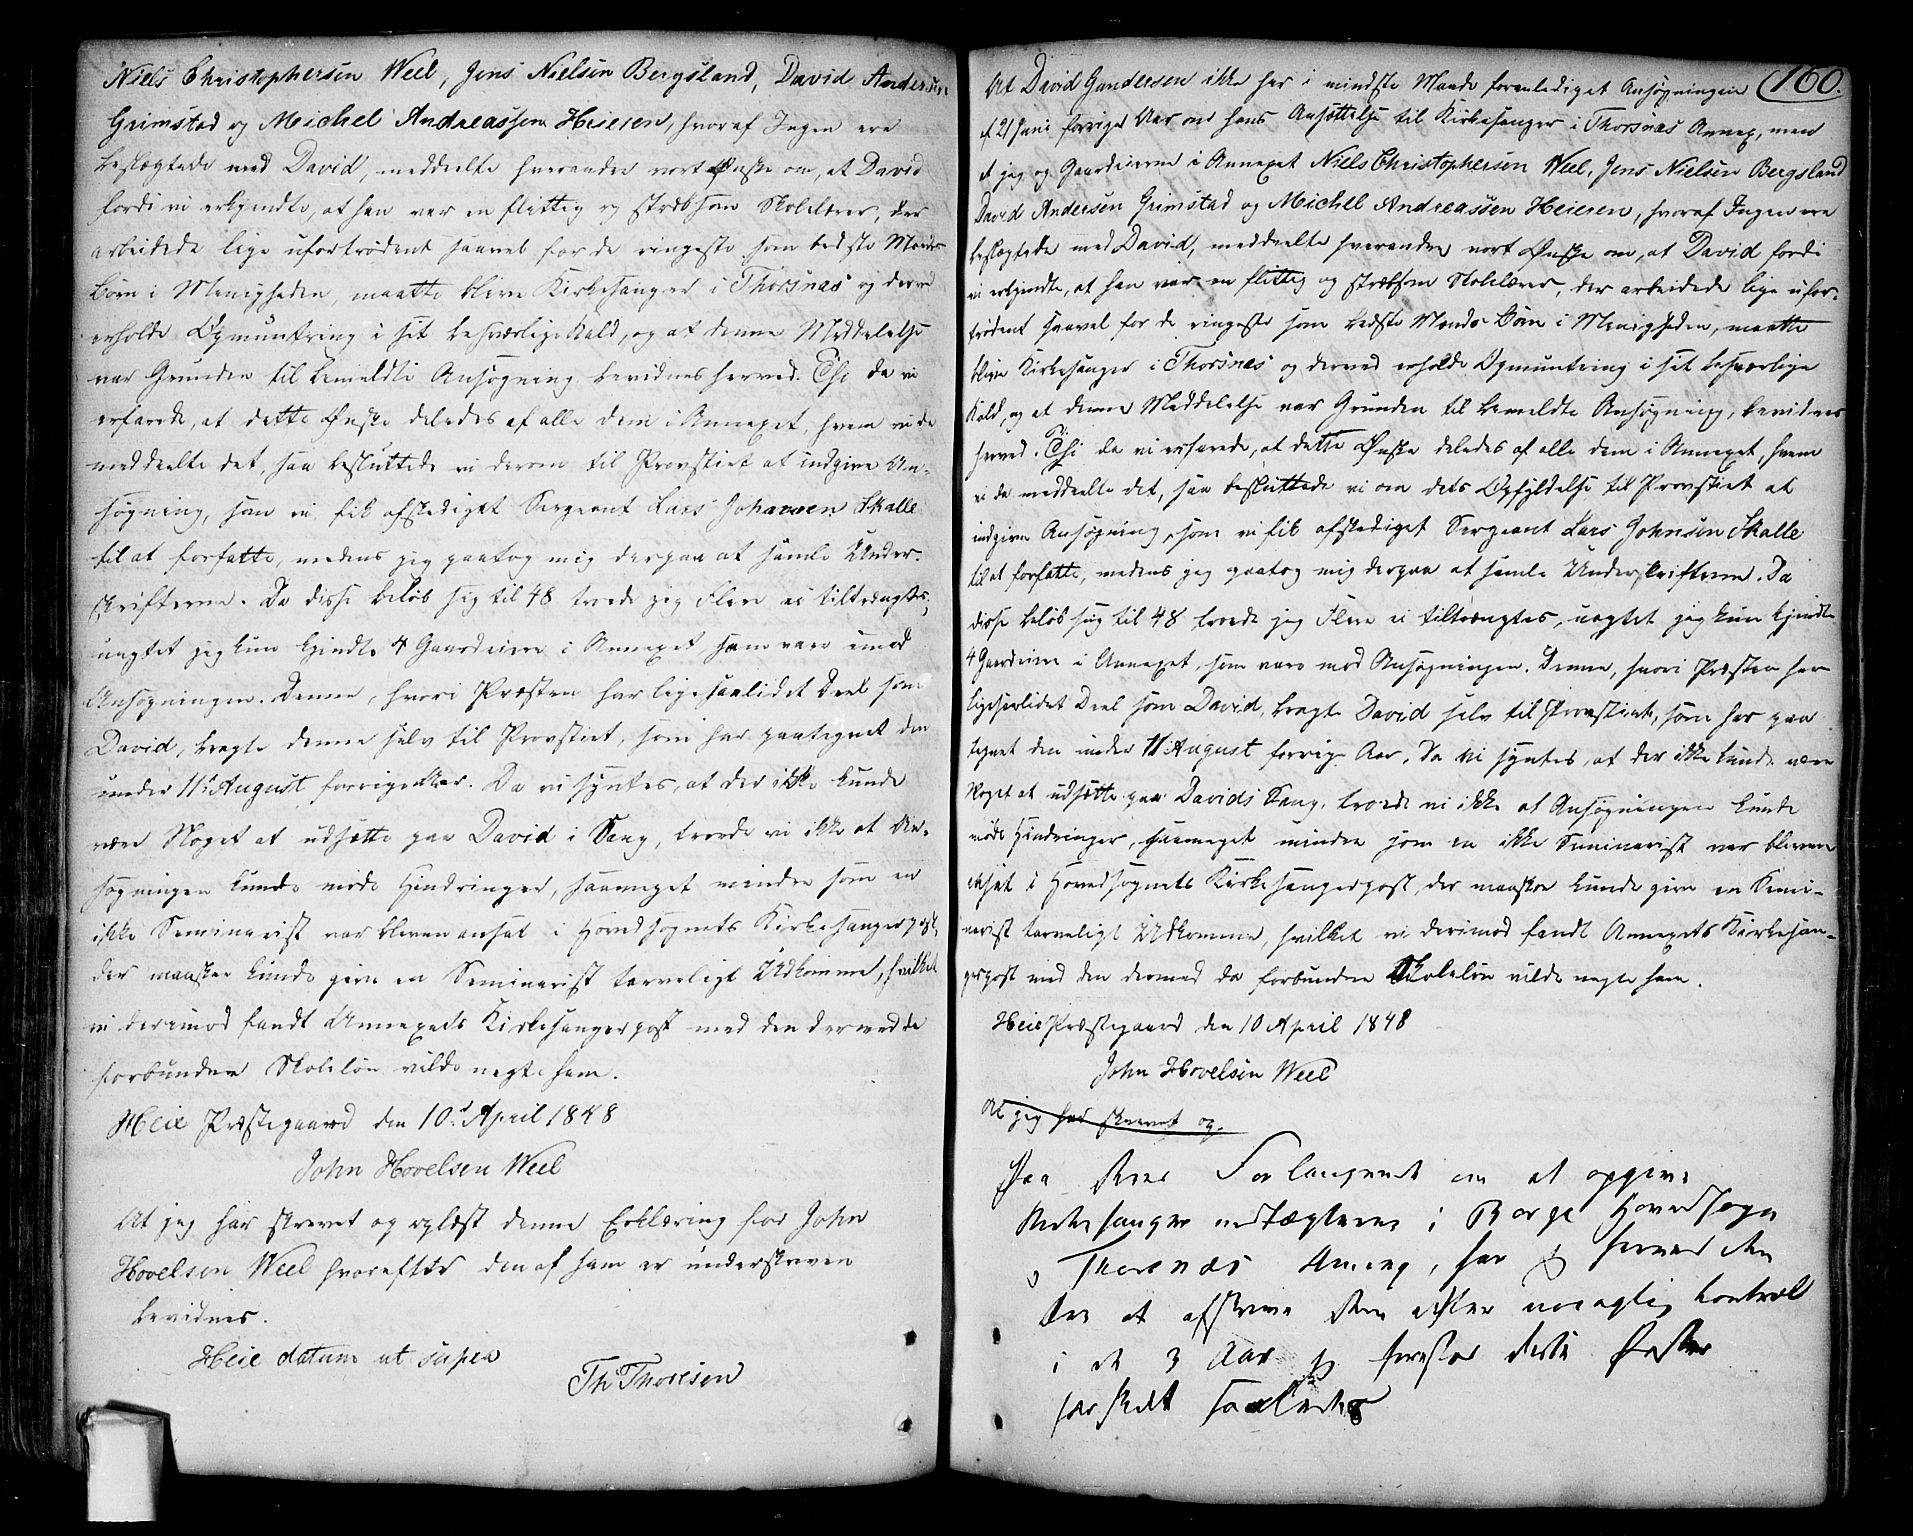 Niels Christophersen Weel, Jens Nielsen Bergsland, David Andersen
Grimstad og Michel Andreassen Heieren, hvoraf Ingen ere
beslægtede med David, meddeelte hverandre vort Ønske om, at David
fordi vi erkjendte, at han var en flittig og stræbsom Skolelærer, der
arbeidede lige ufortrødent saavel for de ringeste som bedste Mænds
Børn i Menigheden, maatte blive Kirkesanger i Thorsnæs og derved
erholde Opmuntring i sit besværlige Kald, og at denne Meddelelse
var Grunden til bemeldte Ansøgning bevidnes herved. Thi da vi
erfarede, at dette Ønske deledes af alle dem i Annexet, hvem vi da
meddeelte det, saa besluttede vi derom til Provstiet at indgive An-
søgning, som vi fik afskediget Sergeant Lars Johannsen Skalle
til at forfatte, medens jeg paatog mig derpaa at samle Under-
skrifterne. Da disse beløb sig til 48 troede jeg Flere ei tiltrængtes,
uagtet jeg kun kjendte 4 Gaardeiere i Annexet som vare imod
Ansøgningen. Denne, hvori Præsten har ligesaalidet Deel som
David, bragte denne selv til Provstiet, som har paategnet den
under 11te August forrige Aar. Da vi syntes, at der ikke kunde
være Noget at udsætte paa David i Sang, troede vi ikke at An-
søgningen kunde møde Hindringer, saameget mindre som en
ikke Seminarist var bleven ansat i Hovedsognets Kirkesangerpost,
der maaskee kunde give en Seminarist tarveligt Udkomme, hvilket
vi derimod fandt Annexets Kirkesangerpost med den dermed da
forbunden Skoleløn vilde negte ham.
Heie Præstegaard den 10de April 1848
John Hovelsen Weel
At jeg har skrevet og oplæst denne Erklæring for John
Hovelsen Weel hvorefter den af ham er underskreven
bevidnes.
Heie datum ut supra
Th Thoresen
160.
At David Gundersen ikke har i mindste Maade foranlediget Ansøgningen
af 21 Juni forrige Aar om hans Ansættelse til Kirkesanger i Thorsnæs Annex, men
at jeg og Gaardeierne i Annexet Niels Christophersen Weel, Jens Nielsen Bergsland
David Andersen Grimstad og Michel Andreassen Heieren, hvoraf Ingen ere
beslægtede med David, meddeelte hverandre vort Ønske om, at David fordi
vi erkjendte, at han var en flittig og stræbsom Skolelærer, der arbeidede lige ufor-
trødent saavel for de ringeste som bedste Mænds Børn i Menigheden, maatte
blive Kirkesanger i Thorsnæs og derved erholde Opmuntring i sit besværlige
Kald, og at denne Meddelelse var Grunden til bemeldte Ansøgning, bevidnes
herved. Thi da vi erfarede, at dette Ønske deledes af alle dem i Annexet, hvem
vi da meddeelte det, saa besluttede vi om dets Opfyldelse til Provstiet at
indgive Ansøgning, som vi fik afskediget Sergeant Lars Johnsen Skalle
til at forfatte, medens jeg paatog mig derpaa at samle Underskrifterne. Da
disse beløb sig til 48 troede jeg Flere ei tiltrængtes, uagtet jeg kun kjendte
4 Gaardeiere i Annexet, som vare mod Ansøgningen. Denne, hvori Præsten har
ligesaalidet Deel som David, bragte David selv til Provstiet, som har paa
tegnet den under 11 August forrige Aar. Da vi syntes, at der ikke kunde være
Noget at udsætte paa Davids Sang, troede vi ikke at Ansøgningen kunde
møde Hindringer, saameget mindre som en ikke Seminarist var bleven
ansat i Hovedsognets Kirkesangerpost, der maaskee kunde give en Semi-
narist tarveligt Udkomme, hvilket vi derimod fandt Annexets Kirkesan-
gerpost med den dermed da forbunden Skoleløn vilde negte ham.
Heie Præstegaard den 10 April 1848
John Hovelsen Weel
At jeg har skrevet og
Paa Deres Forlangende om at opgive
Kirkesanger indtægterne i Borge Hovedsogn
og Thorsnæs Annex, har jeg herved den
Ære at afskrive Dem efter nøiagtig Control
i de 3 Aar jeg forestod dette